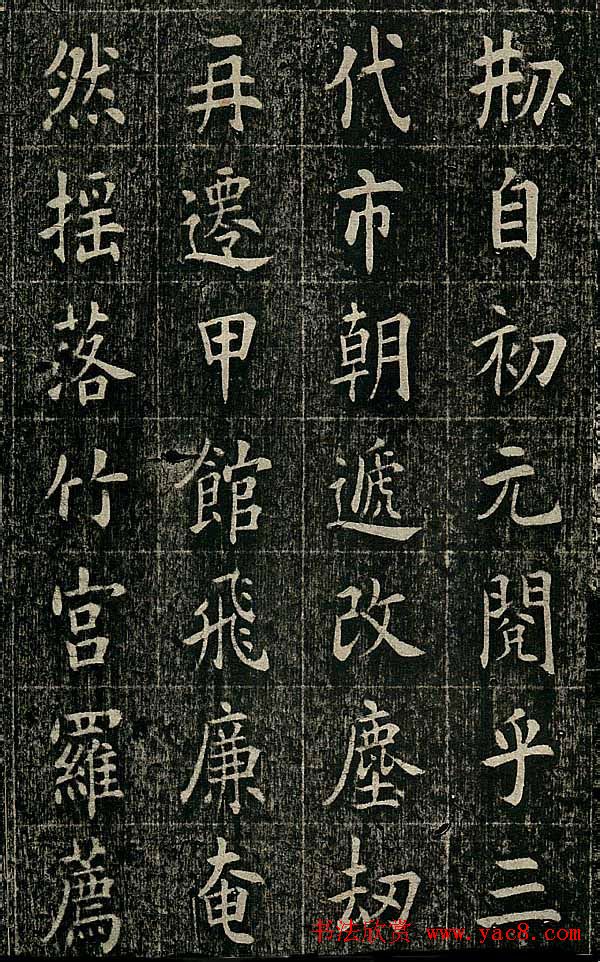 刱自初元閱乎三
代市朝遞改塵刧
再遷甲館飛廉奄
然揺落竹宮羅薦
书法欣赏 www.yac8.com